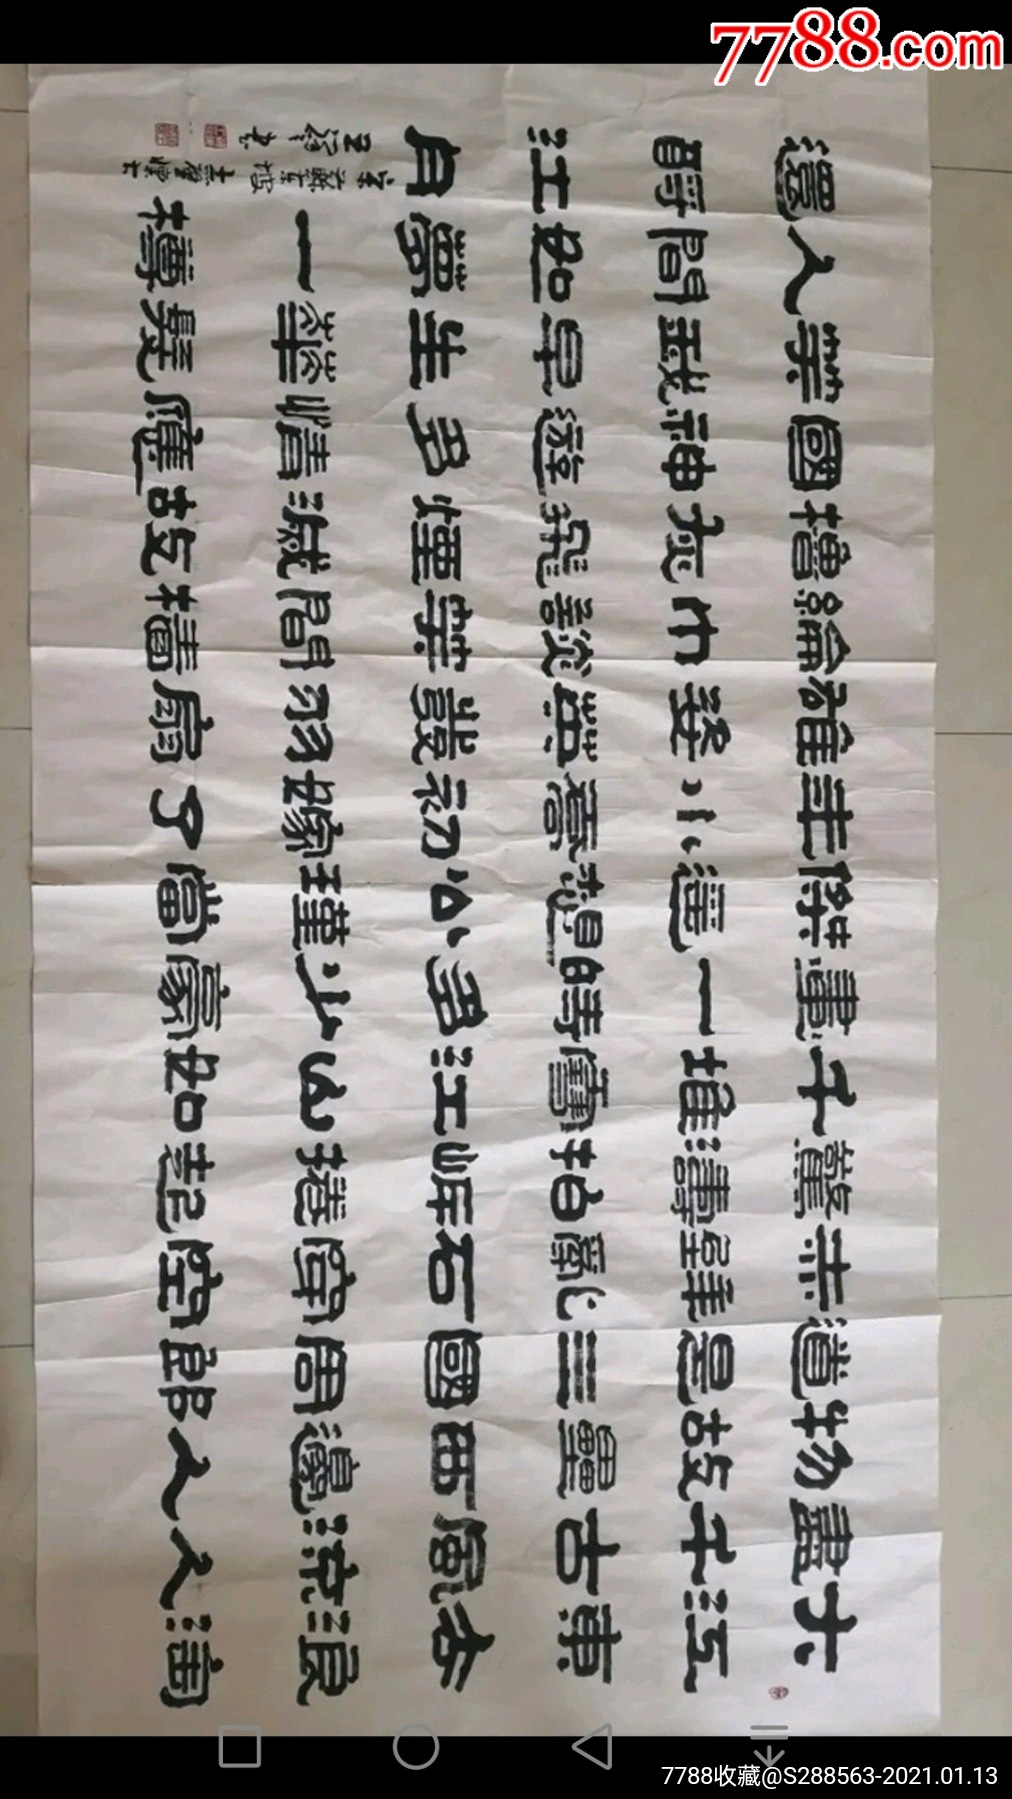 大江東去浪淘
盡千古風流人
物故壘西邊人
道是三國周郎
赤壁亂石穿空
驚濤拍岸捲起
千堆雪江山如
畫一時多少豪
傑遙想公瑾當
年小喬初嫁了
雄姿英發羽扇
綸巾談笑間檣
櫓灰飛煙滅故
國神遊多情應
笑我早生華髮
人間如夢一樽
還酹江月
宋蘇東坡
赤壁懷古
7788.com
7788收藏@S288563-2021.01.13